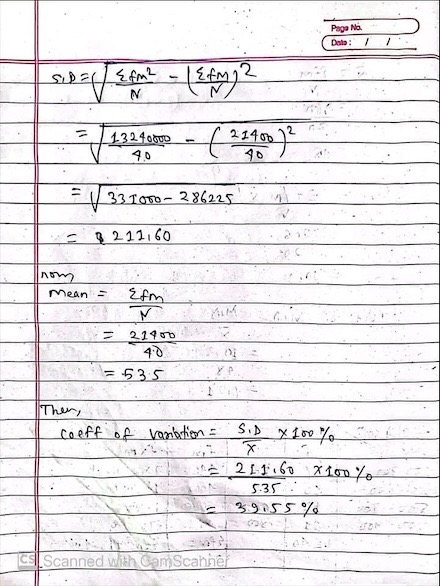 Page No.
Date: / /
S.D = √(Σfm²/N - (Σfm/N)²)
= √(13240000/40 - (21400/40)²)
= √331000 - 286225
= 211.60
now,
Mean = Σfm/N
= 21400/40
= 535
Then,
coeff of variation = S.D/X × 100 %
= 211.60/535 × 100 %
= 39.55 %
CS Scanned with CamScanner